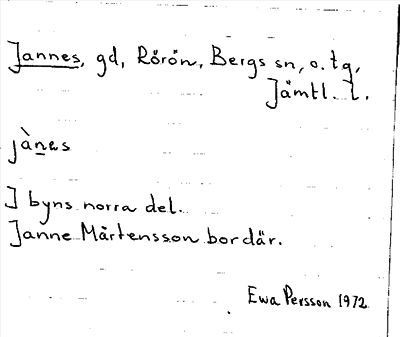 Jannes, gd, Rörön, Bergs sn, o. tg,
Jämtl. l.
jànes
I byns norra del.
Janne Mårtensson bor där.
Ewa Persson 1972